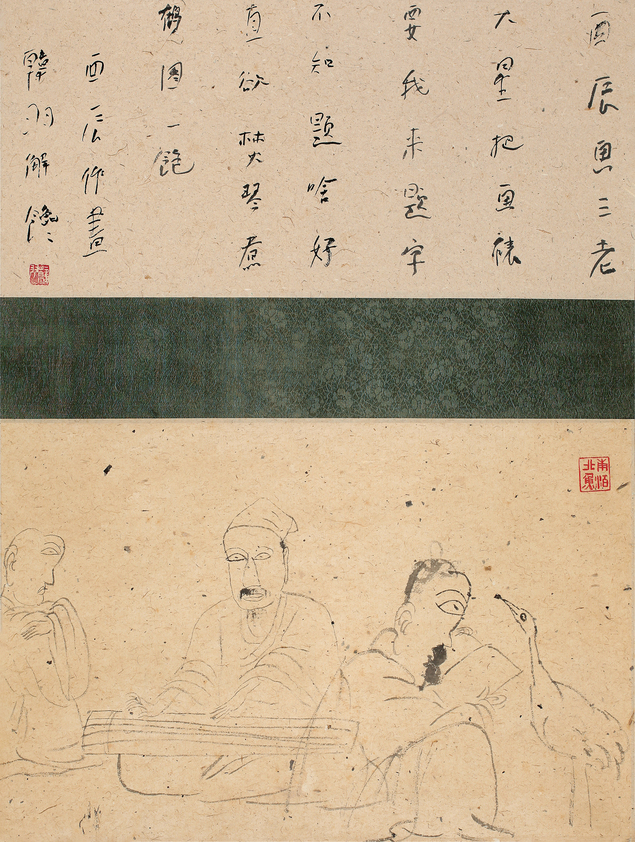 酉辰画三老
大星把画裱
要我来题字
不知题啥好
直欲焚琴煮
鹤图一饱
酉辰作畫
韓羽解饞